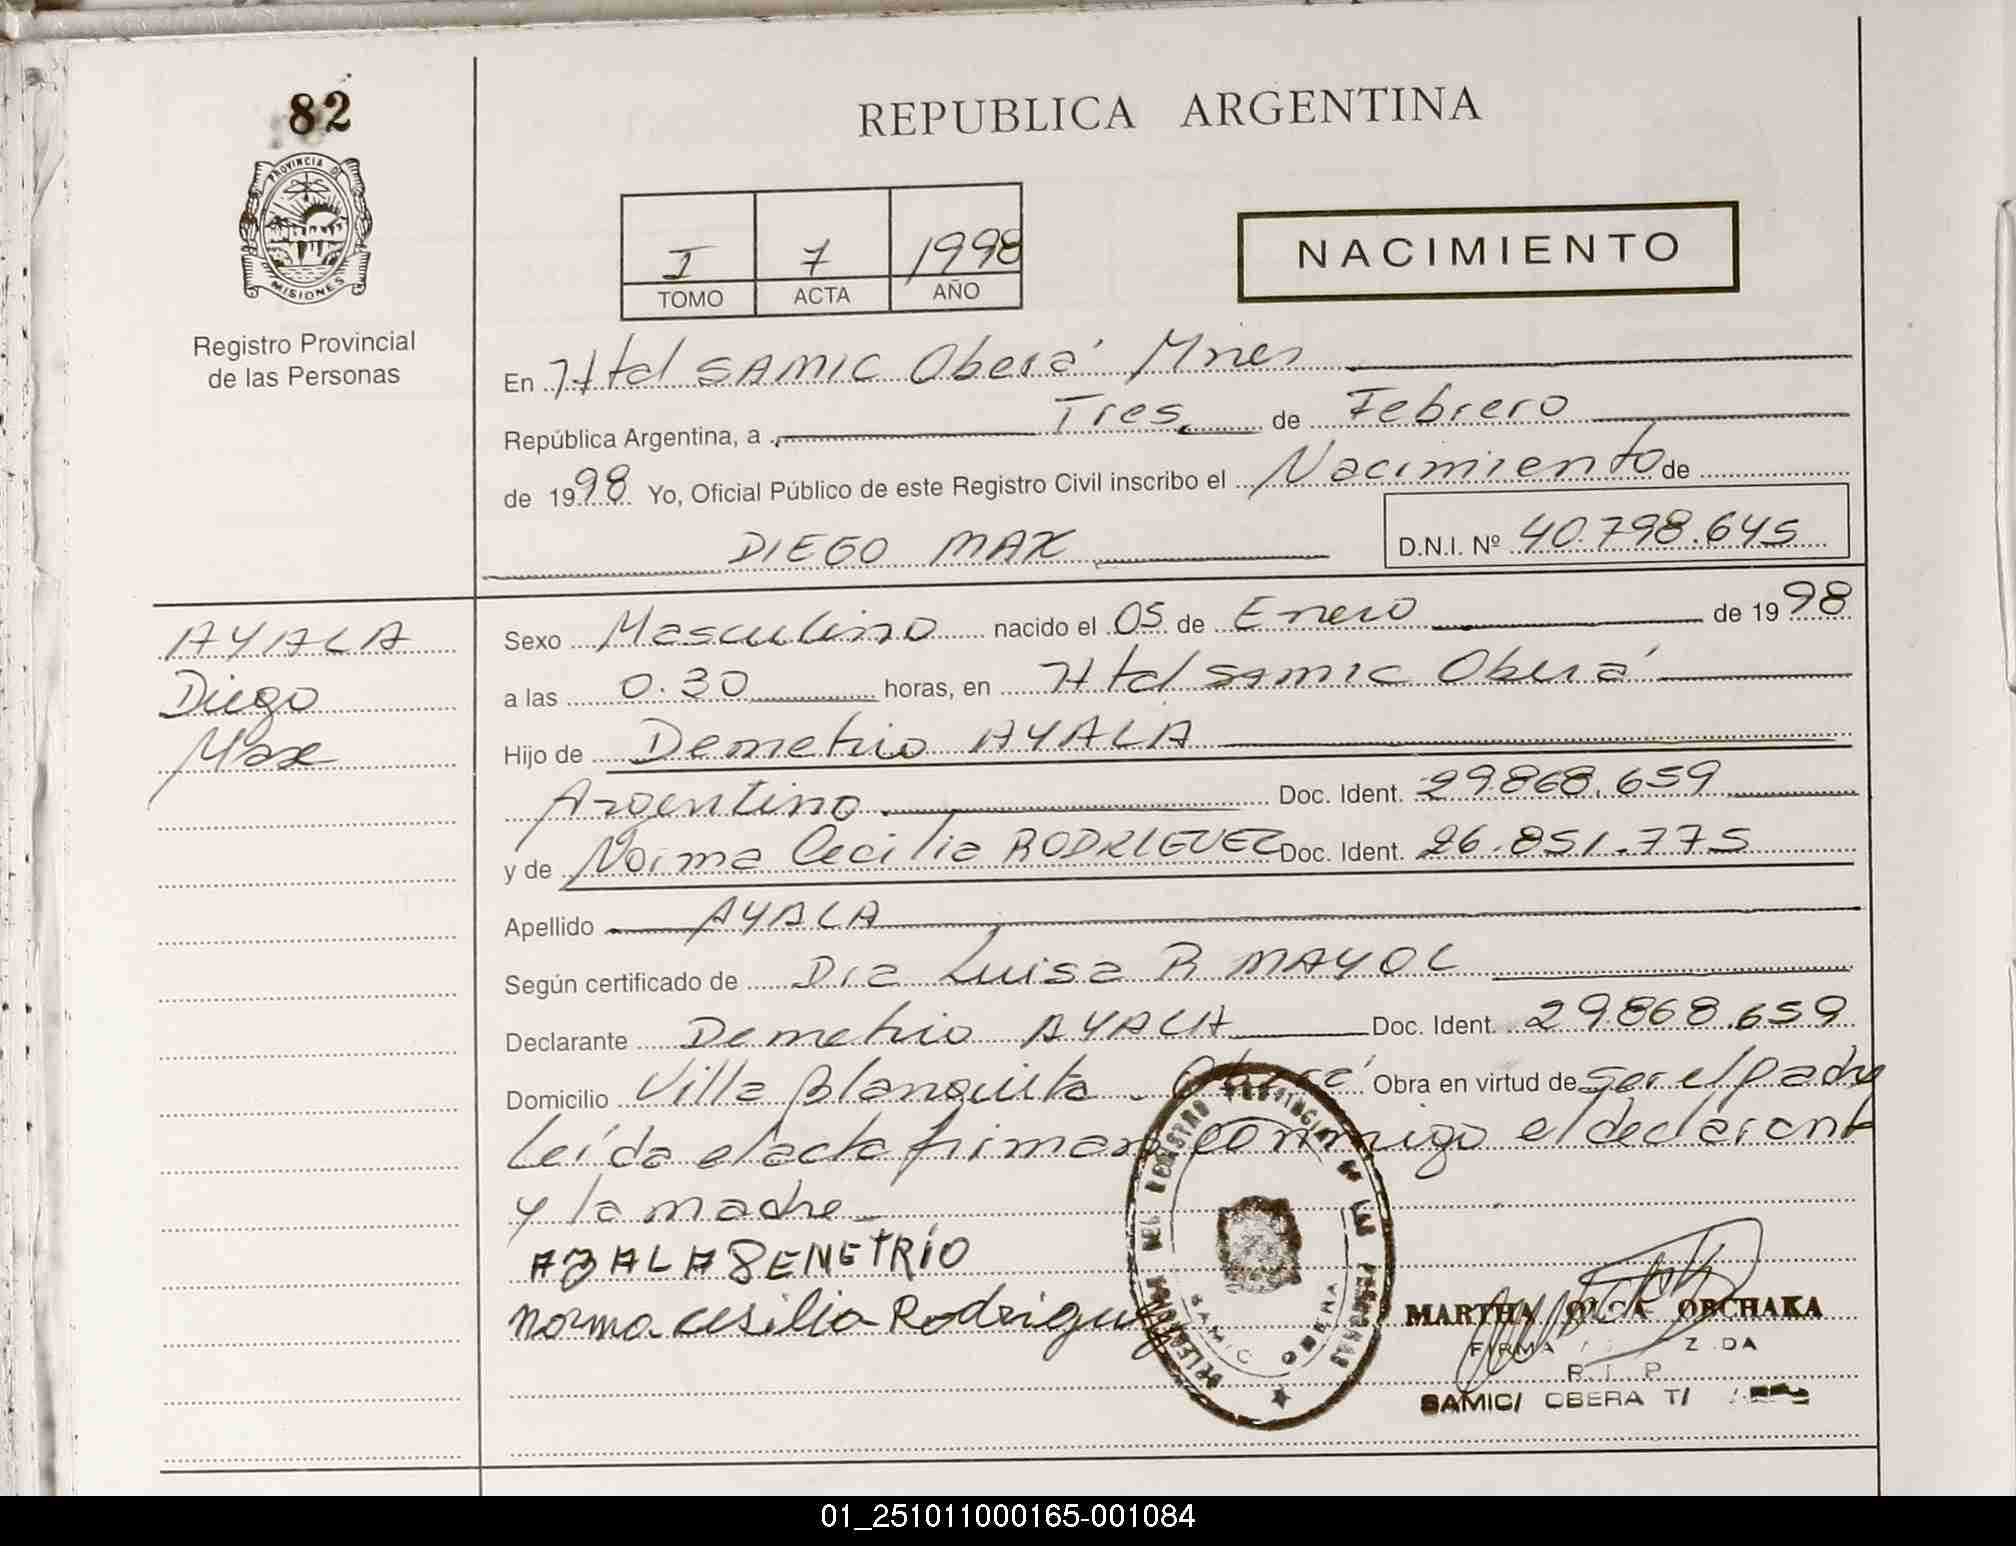 82
PROVINCIA DE
MISIONES
Registro Provincial
de las Personas
REPUBLICA ARGENTINA
I 7 1998
TOMO ACTA AÑO
NACIMIENTO
En Htal SAMIC Oberá Mnes
República Argentina, a Tres de Febrero
de 1998 Yo, Oficial Público de este Registro Civil inscribo el Nacimiento de
DIEGO MAX D.N.I. Nº 40.798.645
AYALA
Diego
Max
Sexo Masculino nacido el 05 de Enero de 1998
a las 0.30 horas, en Htal SAMIC Oberá
Hijo de Demetrio AYALA
Argentino Doc. Ident. 29.868.659
y de Norma Cecilia RODRIGUEZ Doc. Ident. 26.851.775
Apellido AYALA
Según certificado de Dra Luisa R MAYOL
Declarante Demetrio AYALA Doc. Ident. 29.868.659
Domicilio Villa Blanquita - Oberá Obra en virtud de ser el padre
Leída el acta firman conmigo el declarante
y la madre
AYALA DEMETRIO
Norma Cesilia Rodriguez
DELEGACION DEL REGISTRO PROVINCIAL DE LAS PERSONAS
SAMIC OBERA
MARTHA OLGA OBCHAKA
FIRMA
R. P.
SAMIC/ OBERA T/
01_251011000165-001084